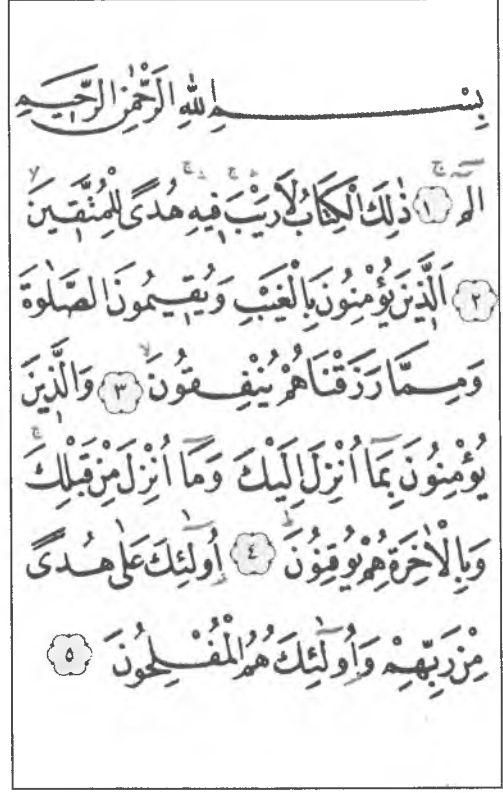 بِسْمِ اللهِ الرَّحْمٰنِ الرَّحِيمِ
الٓمٓ ۚ ﴿١﴾ ذٰلِكَ الْكِتَابُ لَا رَيْبَ ۚۛ فِيهِ ۚۛ هُدًى لِلْمُتَّقِينَ ۙ
﴿٢﴾ اَلَّذِينَ يُؤْمِنُونَ بِالْغَيْبِ وَيُقِيمُونَ الصَّلٰوةَ
وَمِمَّا رَزَقْنَاهُمْ يُنْفِقُونَ ۙ ﴿٣﴾ وَالَّذِينَ
يُؤْمِنُونَ بِمَٓا اُنْزِلَ اِلَيْكَ وَمَٓا اُنْزِلَ مِنْ قَبْلِكَ ۚ
وَبِالْاٰخِرَةِ هُمْ يُوقِنُونَ ۜ ﴿٤﴾ اُو۬لٰٓئِكَ عَلٰى هُدًى
مِنْ رَبِّهِمْ وَاُو۬لٰٓئِكَ هُمُ الْمُفْلِحُونَ ﴿٥﴾